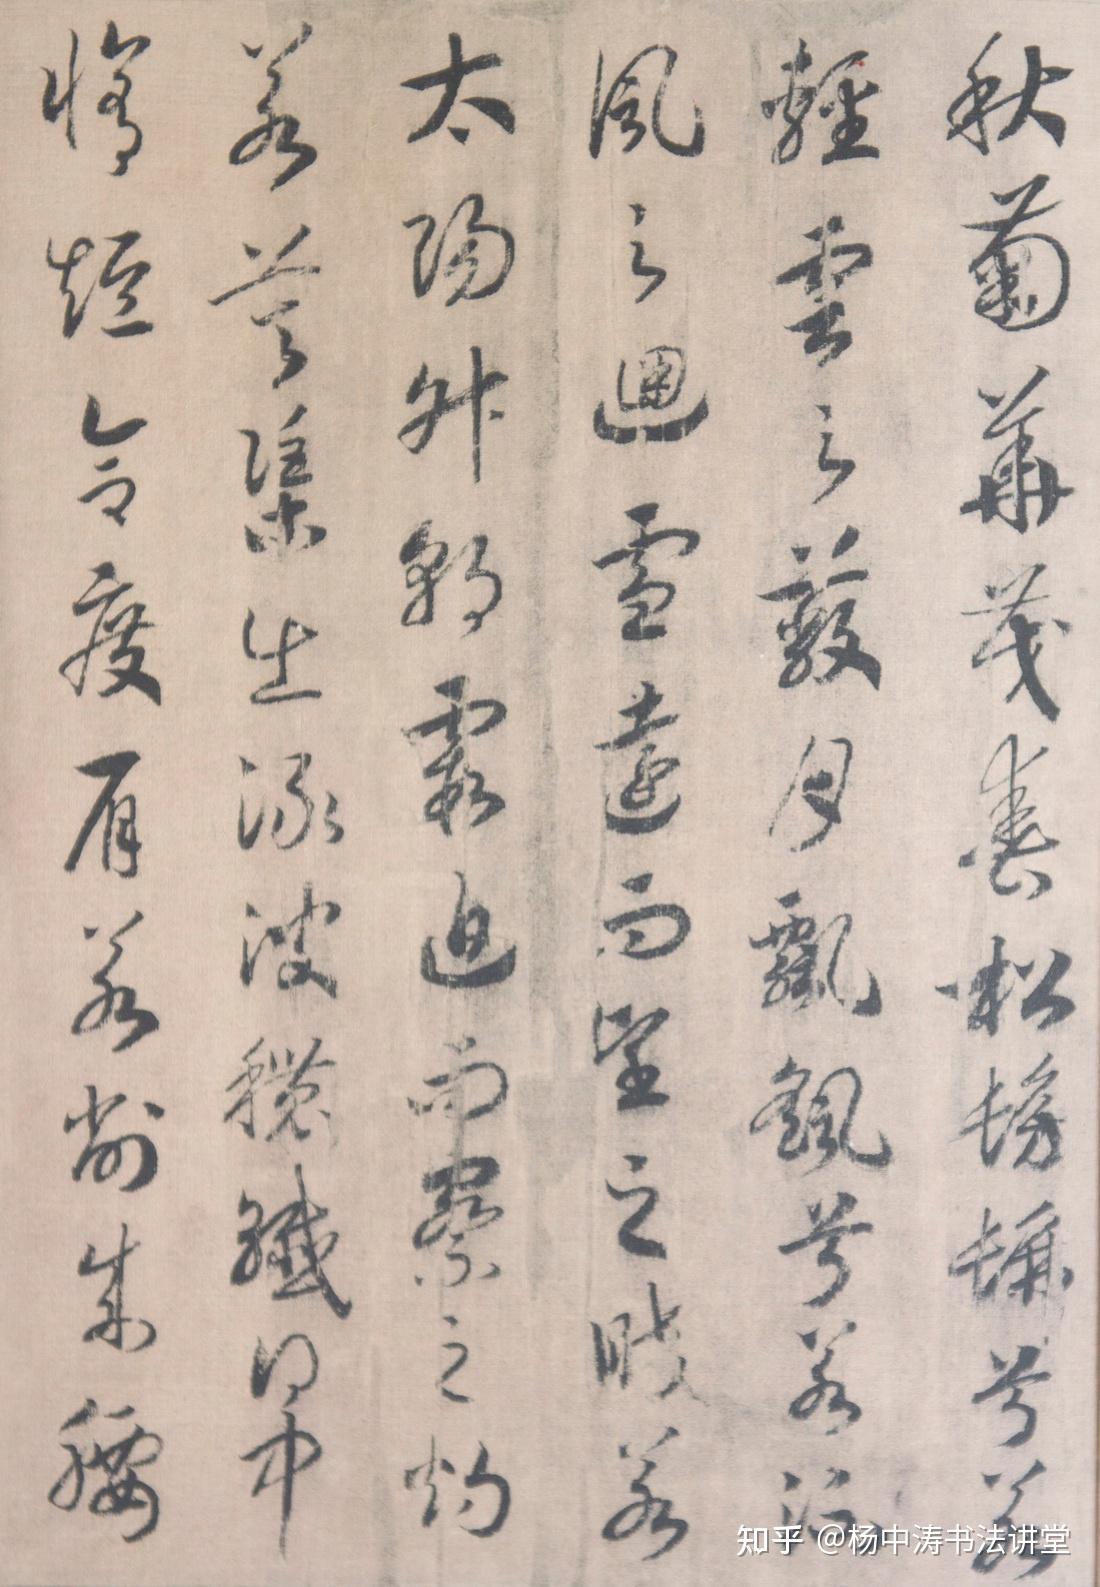 秋菊華茂春松髣髴兮若
輕雲之蔽月飄颻兮若流
風之迴雪遠而望之皎若
太陽升朝霞迫而察之灼
若芙蕖出淥波穠纖得中
脩短合度肩若削成腰
知乎 @杨中涛书法讲堂